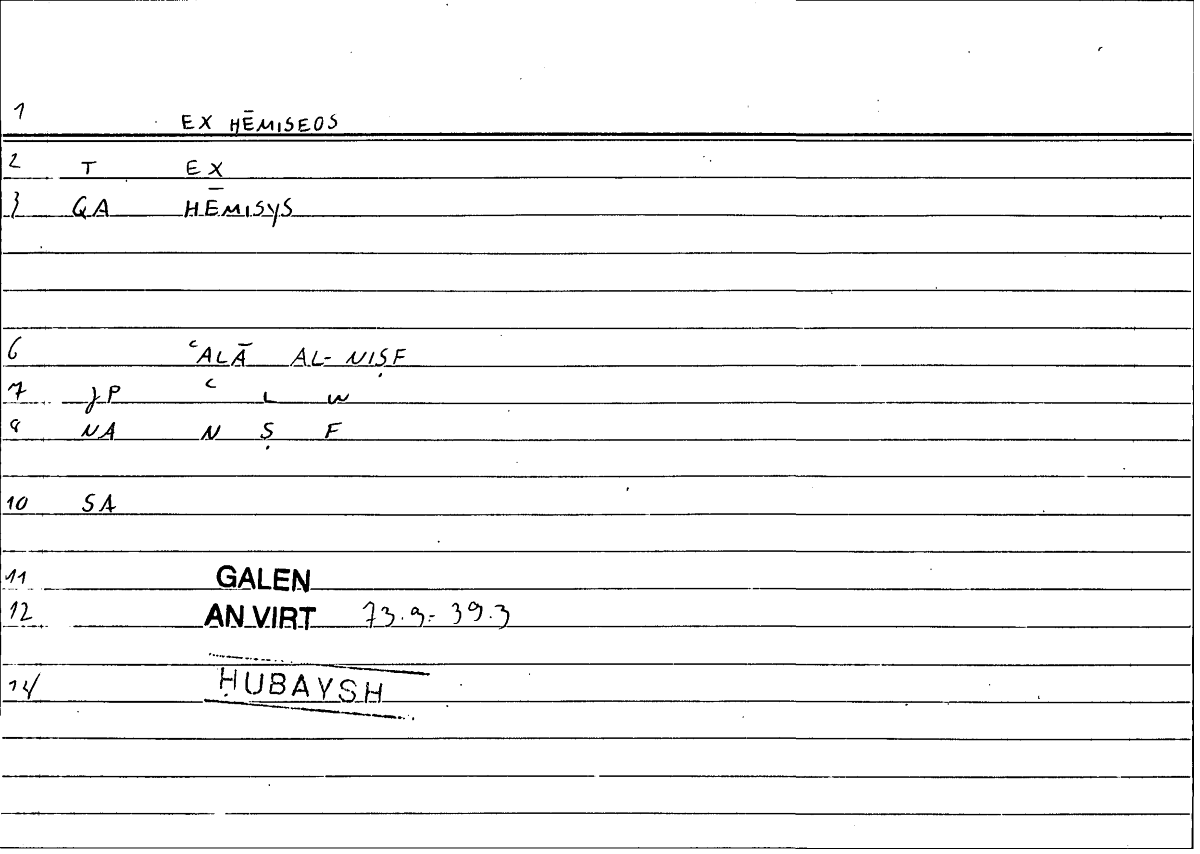 1 EX HĒMISEOS
2 T EX
3 GA HĒMISYS
6 ʿALĀ AL-NIṢF
7 JP ʿ L W
8 NA N Ṣ F
10 SA
11 GALEN
12 AN VIRT 73.9-39.3
14 ḤUBAYSH